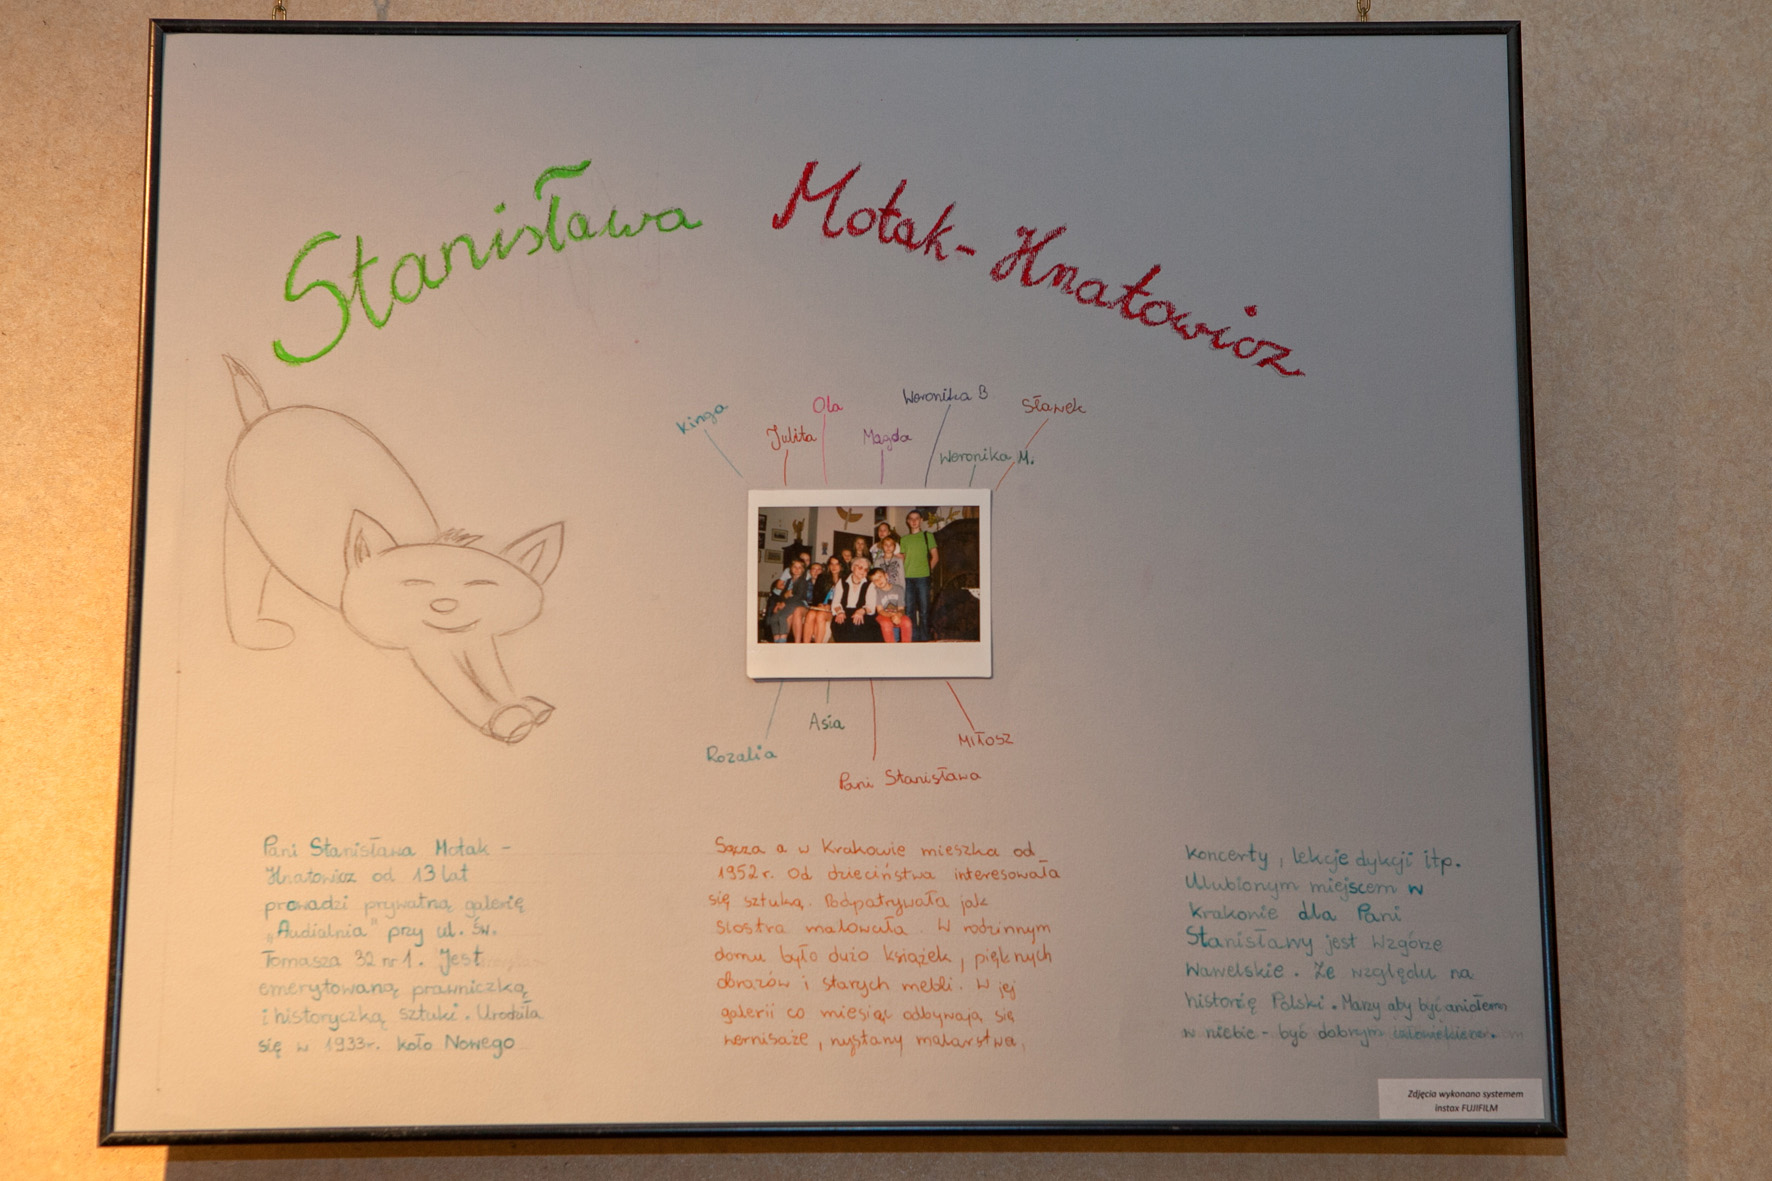 Stanisława Motak-Hnatowicz
Kinga
Julita
Ola
Magda
Weronika B
Weronika M.
Sławek
Rozalia
Asia
Pani Stanisława
Miłosz
Pani Stanisława Motak -
Hnatowicz od 13 lat
prowadzi prywatną galerię
„Audialnia" przy ul. Św.
Tomasza 32 nr 1. Jest
emerytowaną prawniczką
i historyczką sztuki. Urodziła
się w 1933r. koło Nowego
Sącza a w Krakowie mieszka od
1952 r. Od dzieciństwa interesowała
się sztuką. Podpatrywała jak
siostra malowała. W rodzinnym
domu było dużo książek, pięknych
obrazów i starych mebli. W jej
galerii co miesiąc odbywają się
wernisaże, wystawy malarstwa,
koncerty, lekcje dykcji itp.
Ulubionym miejscem w
Krakowie dla Pani
Stanisławy jest Wzgórze
Wawelskie. Ze względu na
historię Polski. Marzy aby być aniołem
w niebie - być dobrym człowiekiem.
Zdjęcia wykonano systemem
instax FUJIFILM